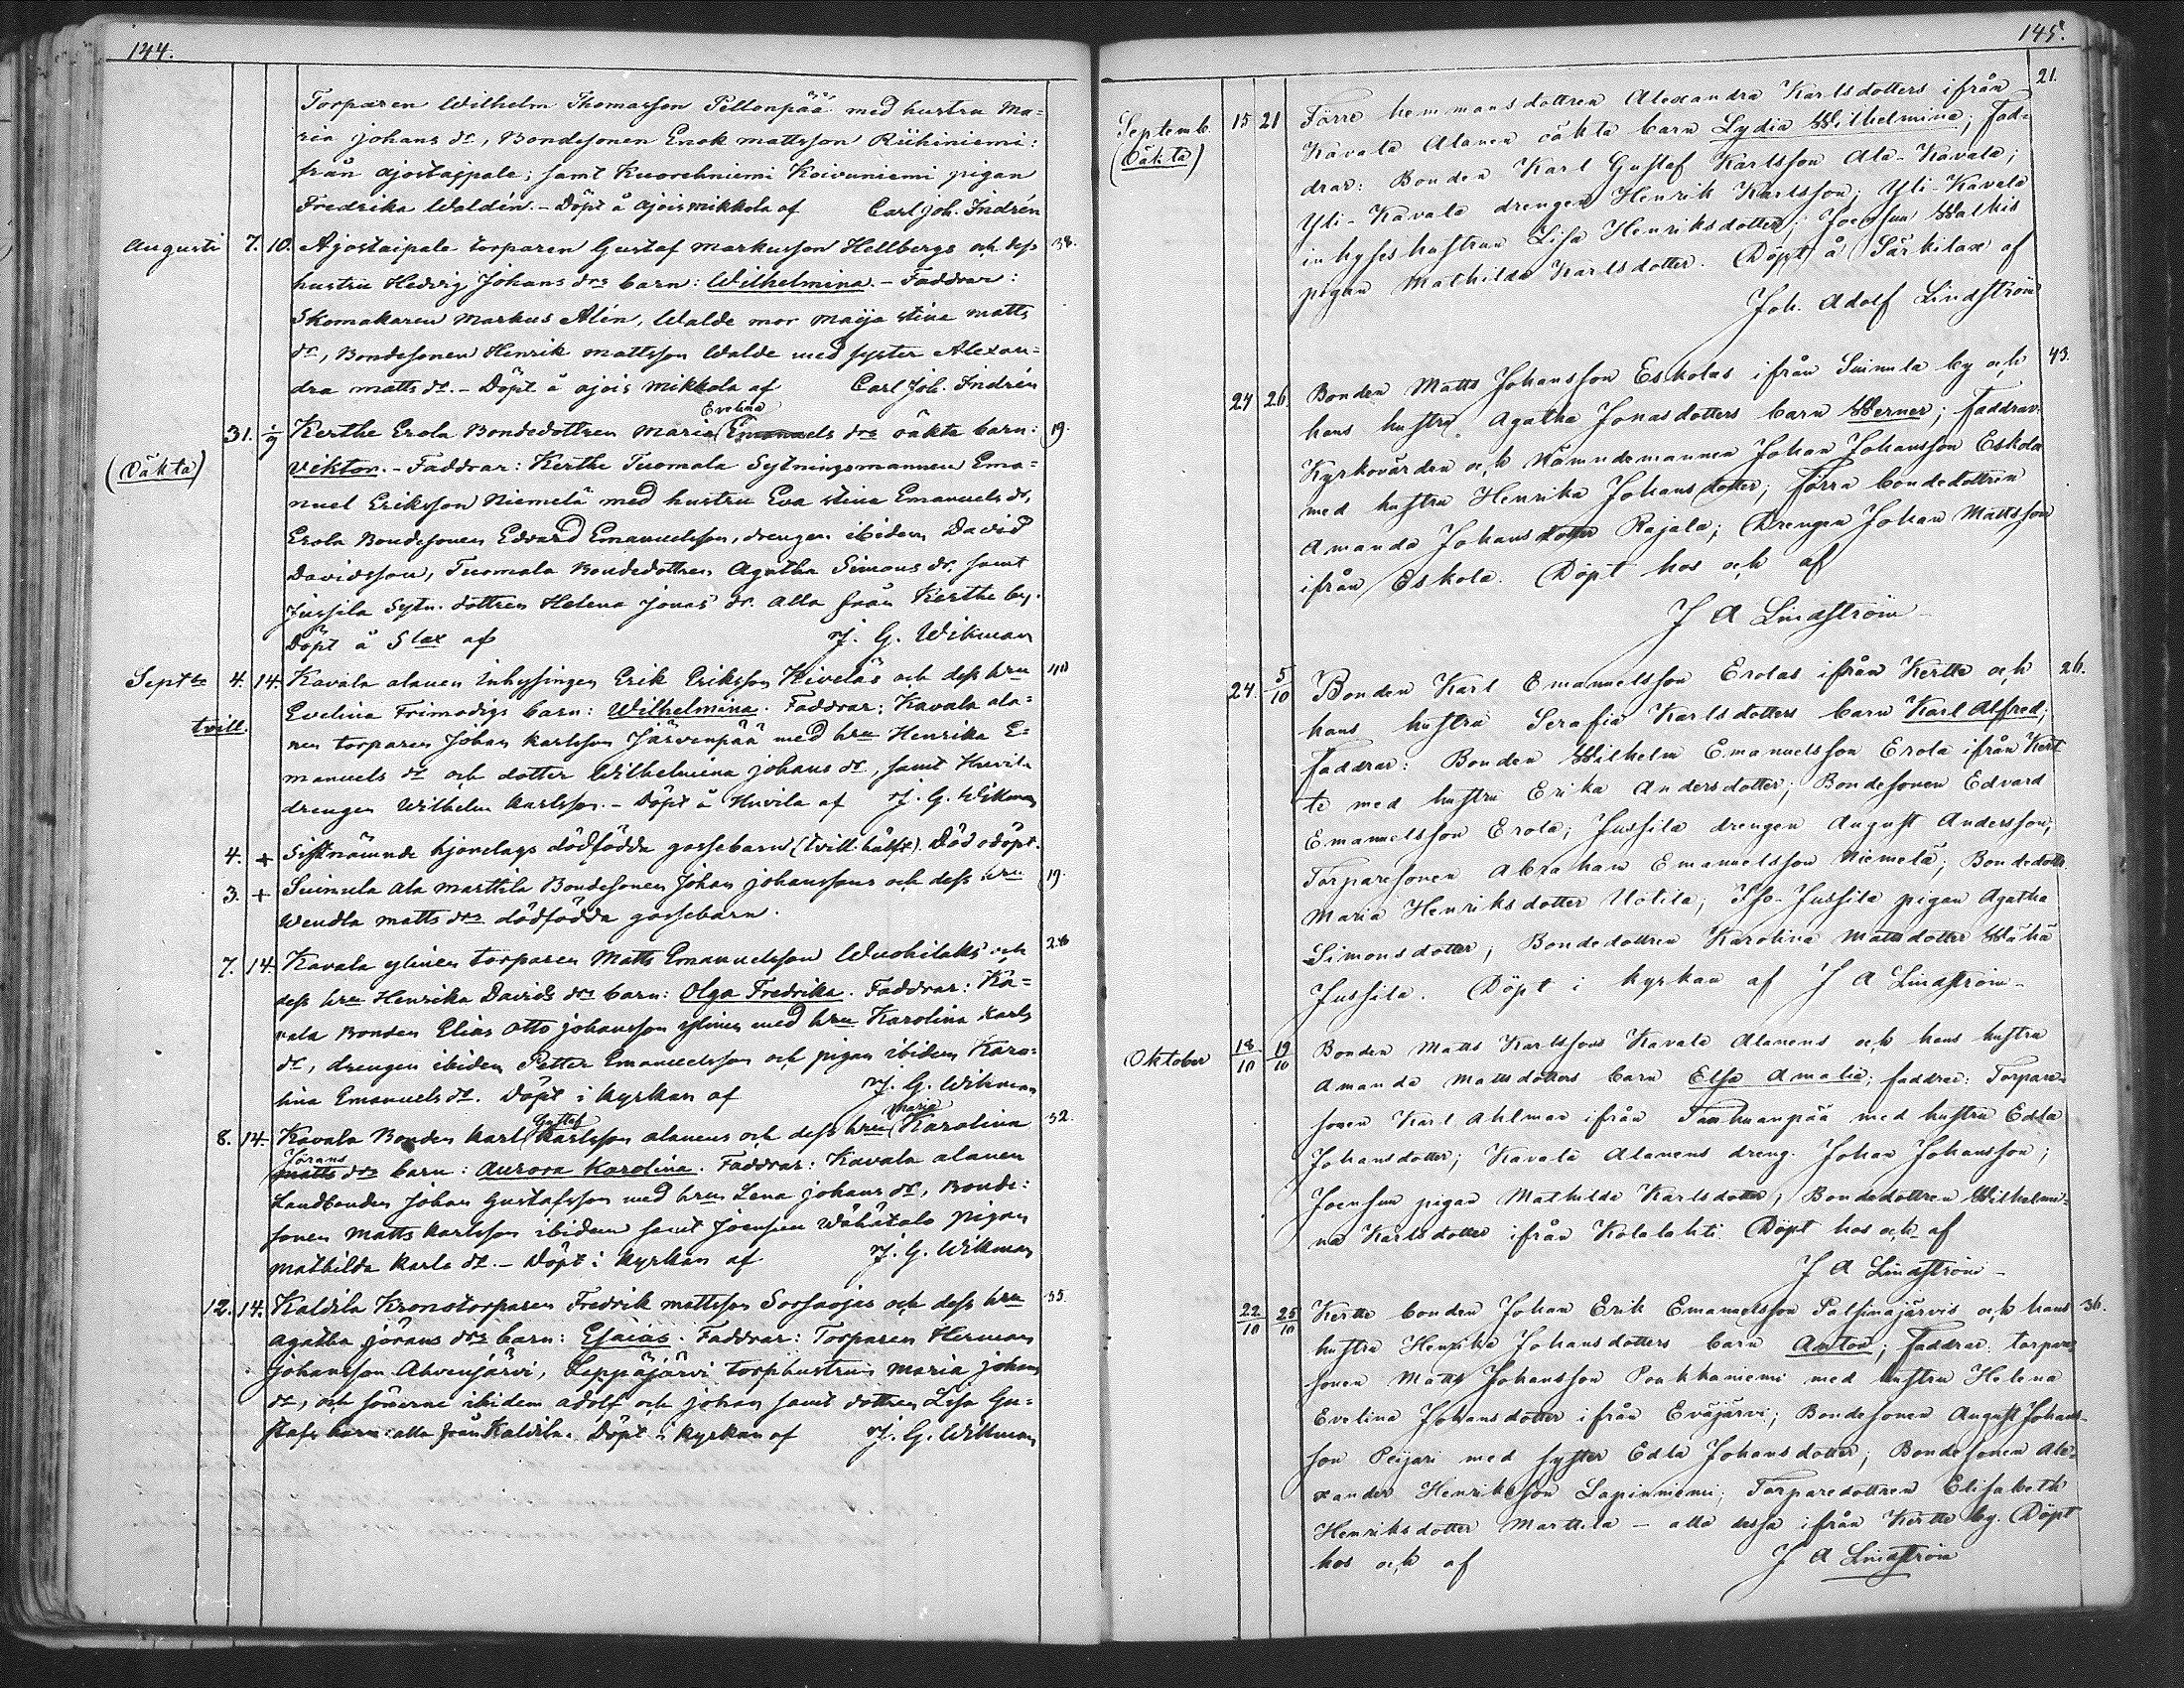 144.
Torparen Wilhelm Thomasson Peltonpää med hustru Ma=
ria Johans dr, Bondesonen Enok Mattsson Riihiniemi:
från Ajostaipale; samt Kuorehniemi Koivuniemi pigan
Fredrika Waldén. – Döpt å Ajois Mikkola af Carl Joh. Indrén
Augusti 7. 10. Ajostaipale torparen Gustaf Markusson Hellbergs och dess 38.
hustru Hedvig Johans drs barn: Wilhelmina. – Faddrar:
Skomakaren Markus Alén, Walde mor Maija Stina Matts
dr, Bondesonen Henrik Mattsson Walde med syster Alexan=
dra Matts dr. – Döpt å Ajois Mikkola af Carl Joh. Indrén
Evelina
31. 1/9 Kerthe Erola Bondedottren Maria Emanuels drs oäkta barn: 19.
(Oäkta) Viktor. – Faddrar: Kerthe Tuomala Sytningsmannen Ema=
nuel Eriksson Niemelä med hustru Eva Stina Emanuels dr,
Erola Bondesonen Edvard Emanuelsson, drengen ibidem David
Davidsson, Tuomala Bondedottren Agatha Simons dr. samt
Jussila Sytn. dottren Helena Jonas dr. alla från Kerthe by.
Döpt å Slax af rj. G. Wikman
Sept. 4. 14. Kavala Alanen Inhysingen Erik Eriksson Kiveläs och dess hru 40
tvill. Evelina Frimodigs barn: Wilhelmina. Faddrar: Kavala Ala=
nen torparen Johan Karlsson Järvenpää med hru Henrika E=
manuels dr och dotter Wilhelmina Johans dr, samt Huvila
drengen Wilhelm Karlsson. – Döpt å Huvila af rj. G. Wikman
4. + Sistnämnde hjonelags dödfödda gossebarn (tvill. hälft). Död odöpt.
3. + Suinula Ala Marttila Bondesonen Johan Johanssons och dess hru 19.
Wendla Matts drs dödfödda gossebarn.
7. 14. Kavala Ylinen torparen Matts Emanuelsson Wuohilaks och 28
dess hru Henrika Davids drs barn: Olga Fredrika. Faddrar: Ka=
vala Bonden Elias Otto Johansson Ylinen med hru Karolina Karls
dr, drengen ibidem Petter Emanuelsson och pigan ibidem Karo=
lina Emanuels dr. Döpt i kyrkan af rj. G. Wikman
Gustaf Maria
8. 14. Kavala Bonden Karl Karlsson Alanens och dess hru Karolina 32.
Jörans
Matts drs barn: Aurora Karolina. Faddrar: Kavala Alanen
Landbonden Johan Gustafsson med hru Lena Johans dr, Bonde=
sonen Matts Karlsson ibidem samt Joensuu Wähätalo pigan
Mathilda Karls dr. – Döpt i kyrkan af rj. G. Wikman
12. 14. Kaldila Kronotorparen Fredrik Mattsson Sorsaojas och dess hru 35
Agatha Jörans drs barn: Esaias. Faddrar: Torparen Herman
Johansson Ahvenjärvi, Leppäjärvi torphustrun Maria Johans
dr, och sönerne ibidem Adolf och Johan samt dottren Lisa Gu=
stafs barn alla från Kaldila. Döpt i kyrkan af rj. G. Wikman
145.
Septemb. 15 21 Förre hemmansdottren Alexandra Karlsdotters ifrån 21.
(Oäkta) Kavala Alanen oäkta barn Lydia Wilhelmina; Fad=
drar: Bonden Karl Gustaf Karlsson Ala-Kavala;
Yli-Kavala drengen Henrik Karlsson; Yli-Kavala
inhyseshustrun Lisa Henriksdotter; Joensuu Walkis
pigan Mathilda Karlsdotter. Döpt å Särkilax af
Joh. Adolf Lindström
24 26. Bonden Matts Johansson Eskolas ifrån Suinula by och 43.
hans hustru Agatha Jonasdotters barn Werner; Faddrar:
Kyrkovärden och Nämndemannen Johan Johansson Eskola
med hustru Henrika Johansdotter; Förra bondedottren
Amanda Johansdotter Rajala; Drengen Johan Mattsson
ifrån Eskola. Döpt hos och af
J A Lindström
24. 5/10 Bonden Karl Emanuelsson Erolas ifrån Kertte och 26.
hans hustru Serafia Karlsdotters barn Karl Alfred;
Faddrar: Bonden Wilhelm Emanuelsson Erola ifrån Kert
te med hustru Erika Andersdotter; Bondesonen Edvard
Emanuelsson Erola; Jussila drengen August Andersson;
Torparesonen Abraham Emanuelsson Niemelä; Bondedott.
Maria Henriksdotter Uotila; Iso-Jussila pigan Agatha
Simonsdotter; Bondedottren Karolina Mattsdotter Wähä
Jussila. Döpt i kyrkan af J A Lindström
Oktober 18/10 19/10 Bonden Matts Karlssons Kavala Alanens och hans hustru
Amanda Mattsdotters barn Elsa Amalia; faddrar: Torpare=
sonen Karl Ahlmar ifrån med hustru Edla
Johansdotter; Kavala Alanens dreng. Johan Johansson;
Joensuu pigan Mathilda Karlsdotter; Bondedottren Wilhelmi=
na Karlsdotter ifrån Kolalahti. Döpt hos och af
J A Lindström
22/10 25/10 Kertte bonden Johan Erik Emanuelsson Palsinajärvis och hans 36.
hustru Henrika Johansdotters barn Anton; faddrar: torpare
sonen Matts Johansson Poukkaniemi med hustru Helena
Evelina Johansdotter ifrån Eväjärvi; Bondesonen August Johans-
son Peijari med syster Edla Johansdotter; Bondesonen Ale=
xander Henriksson Lapinniemi; Torparedottren Elisabeth
Henriksdotter Marttila – alla dessa ifrån Kertte by. Döpt
hos och af J A Lindström